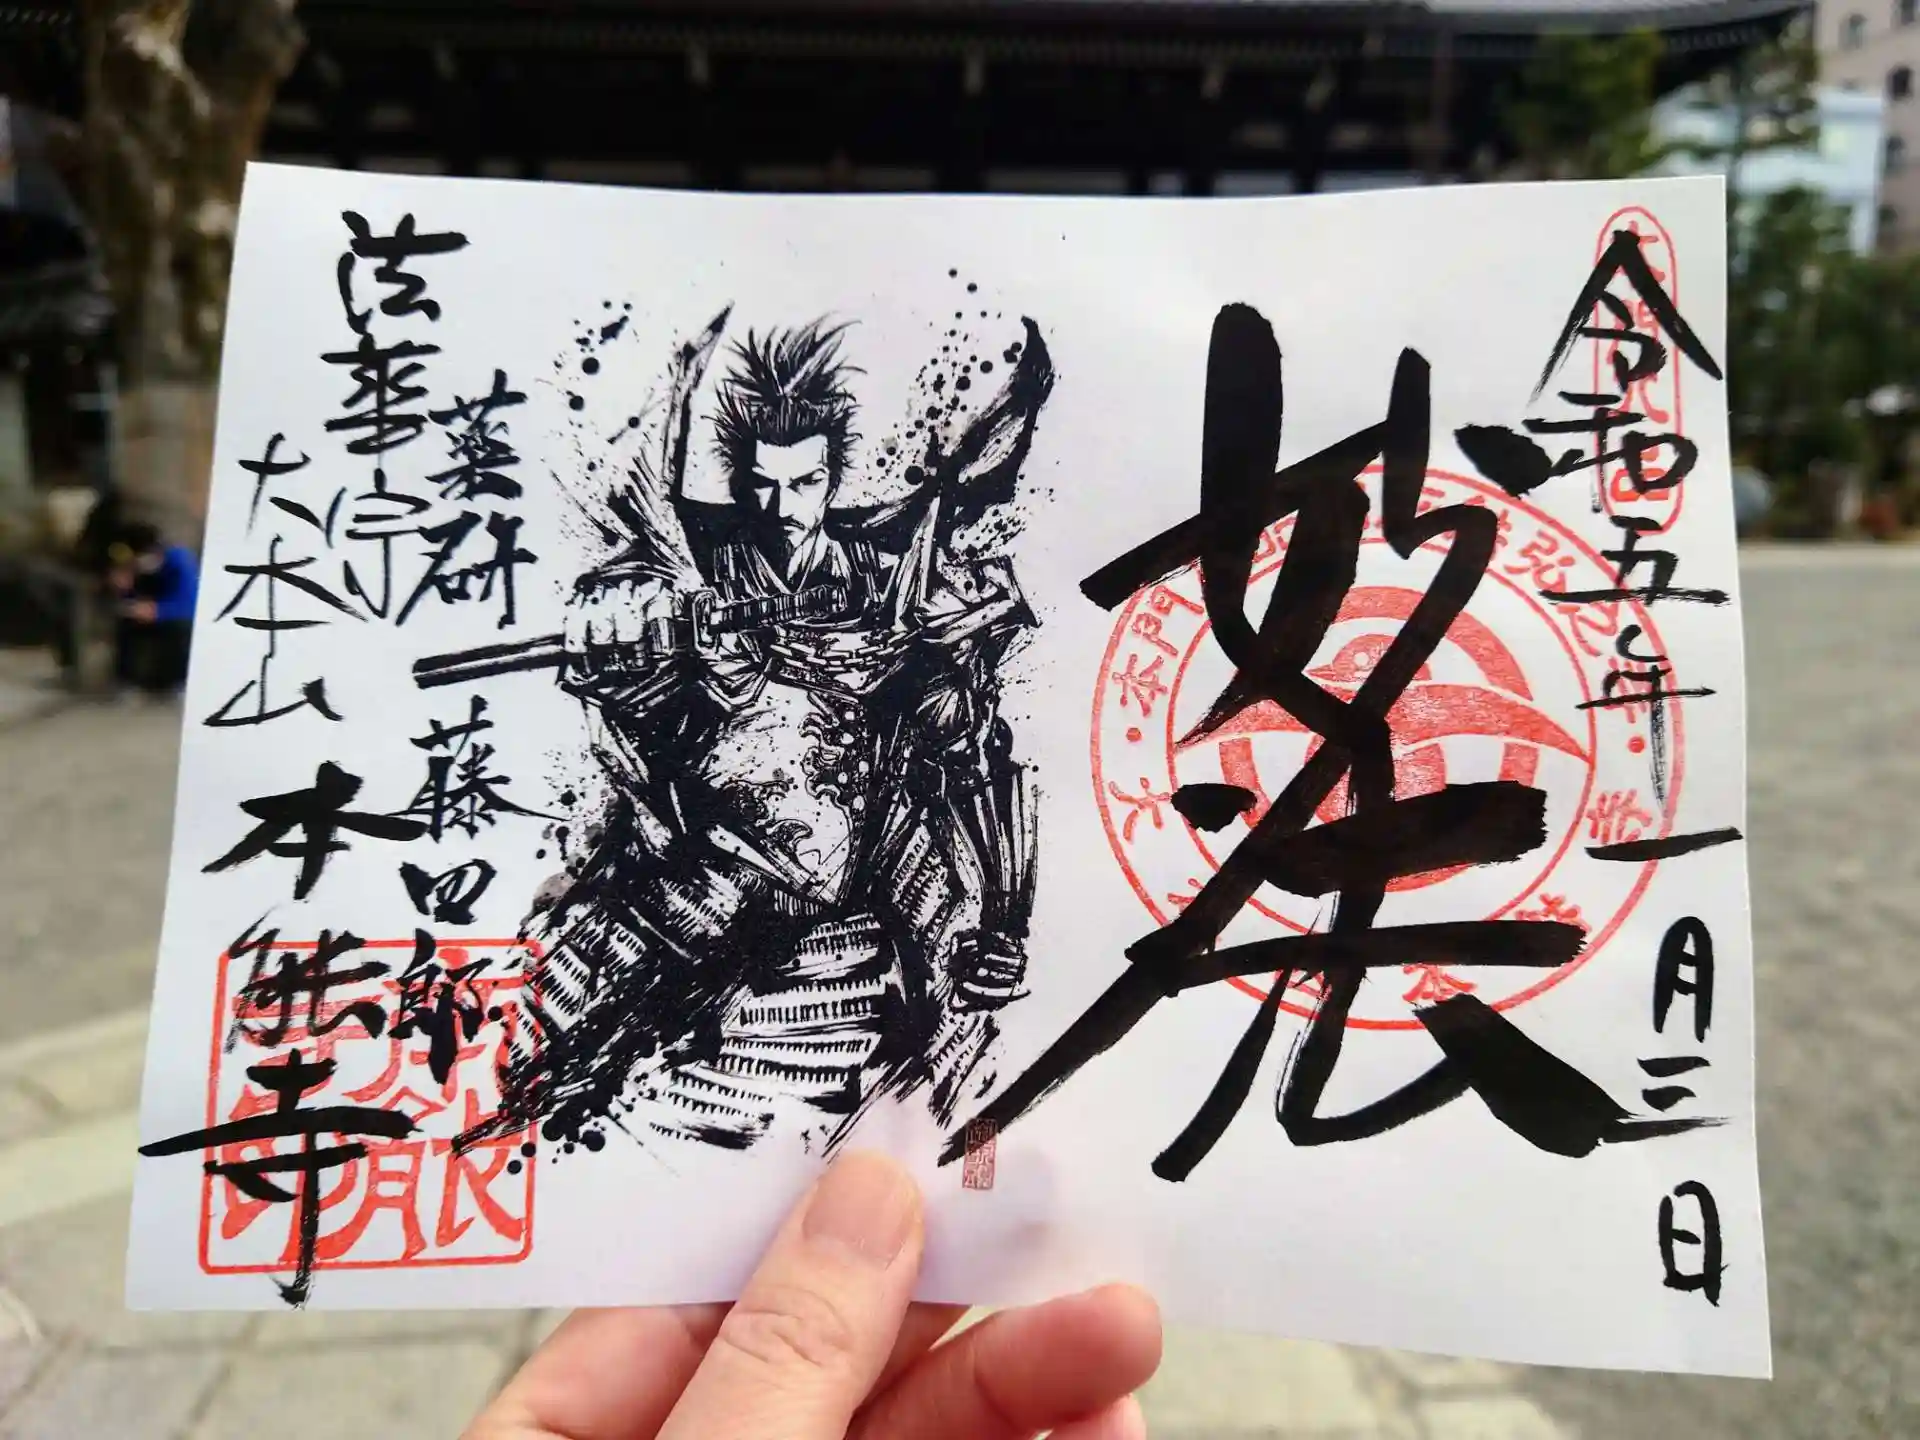 令和五年一月三日
妙法
薬研藤四郎
法華宗
大本山
本能寺